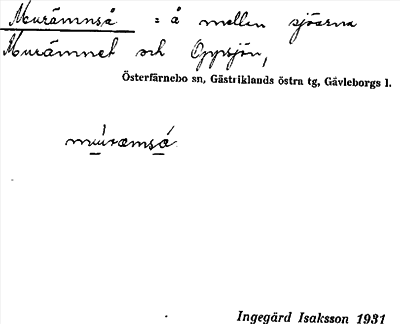 Murämnså = å mellan sjöarna
Murämnet och Oppsjön,
Österfärnebo sn, Gästriklands östra tg, Gävleborgs l.
muuramså
Ingegärd Isaksson 1931